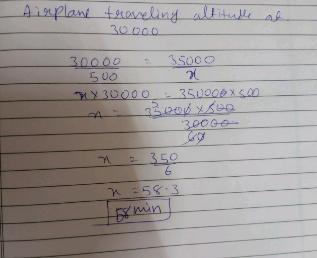 Airplane traveling altitude at
30000
30000 = 35000
500 x
x × 30000 = 35000 × 500
x = 35000 × 500
30000
60
x = 350
6
x = 58.3
58 min